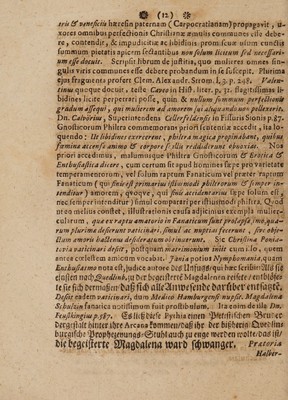 (12)
aris & veneficiis hæresin paternam (Carpocratianam) propagavit, u-
xores omnibus perfectionis Christianæ æmulis communes esse debe-
re, contendit, & impudicitiæ ac libidinis promiscuæ usum cunctis
summam pietatis apicem sectantibus non solum licitum sed necessari-
um esse docuit. Scripsit librum de justitia, quo mulieres omnes sin-
gulis viris communes esse debere probandum in se suscepit. Plurima
ejus fragmenta profert Clem. Alexandr. Strom. l. 3. p. 248. Valen-
tinus quoque docuit, teste Caveo in Hist. liter. p. 31. flagitiosas li-
bidines licite perpetrari posse, quin, & nullum summum perfectionis
gradum assequi, qui mulierem ad amorem sui aliquando non pellexerit.
Dn. Calvörius, Superintendens Cellerfeldensis in Fissuris Sionis p. 87.
Gnosticorum Philtra commemorans priori sententia accedit, ita lo-
quendo: Ut libidines exercerent, philtra magica propinabant, quibus
fœmina accensa animo & corpore se illis reddiderunt obnoxias. Nos
priori accedimus, malumusque Philtra Gnosticorum & Erotica &
Enthusiastica dicere, cum certum sit apud homines sæpe pro varietate
temperamentorum, vel solum raptum Fanaticum vel præter raptum
Fanaticum (qui sine se primarius est) amorem, quoque, qui sint
nec semper intenditur) simul comparati per istiusmodi philtra. Quod
ut eo melius constet, illustrationis causa adjicimus exempla mulier-
cularum, quæ ex raptu amatorio in Fanaticum sunt prolapsæ, una qua-
rum plurima deserunt vaticinari, simul ac nuptias fecerunt, sive obje-
ctum amoris hactenus desideratum obtinuerunt. Sic Christina Ponia-
tovia vaticinari desiit, postquam matrimonium iniit cum illo, quem
antea cœlestem amicum vocabat. Ponia potius Nymphomania, quam
Enthusiasmo nota est, judice autore
sie sich dermaßen/ daß sich alle Anwesende darüber entsatzt.
Desiit eadem vaticinari, dum Medico Hamburgensi nupsit. Magdalena
Schultzin fanatica notissimum fuit prostibulum. Ita enim de illa Dn.
Feustkingius p. 587. Es ließ diese Pythia einen Pietistischen Bruder
dergestalt hinter ihre Arcana kommen/ daß ihr der bißherige Quedlin-
burgische Prophezeyungs-Stuhl auch zu enge werden wolte/ das ist/
die begeisterte Magdalena ward schwanger. Prætoria
Halber-